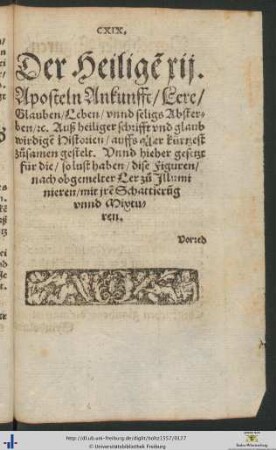 CXIX.
Der Heiligẽ xij.
Aposteln Ankunfft/Lere/
Glauben/Leben/vnnd seligs Abster-
ben/ꝛc. Auß heiliger schrifft vnd glaub
wirdigẽ Historien/auffs aller kürtzest
zůsamen gestelt. Vnnd hieher gesetzt
für die/so lust haben/dise Figuren/
nach obgemelter Ler zů Illumi
nieren/mit jrẽ Schattierũg
vnnd Mixtu-
ren.
Vorred
http://dl.ub.uni-freiburg.de/diglit/boltz1557/0127
© Universitätsbibliothek Freiburg
Baden-Württemberg